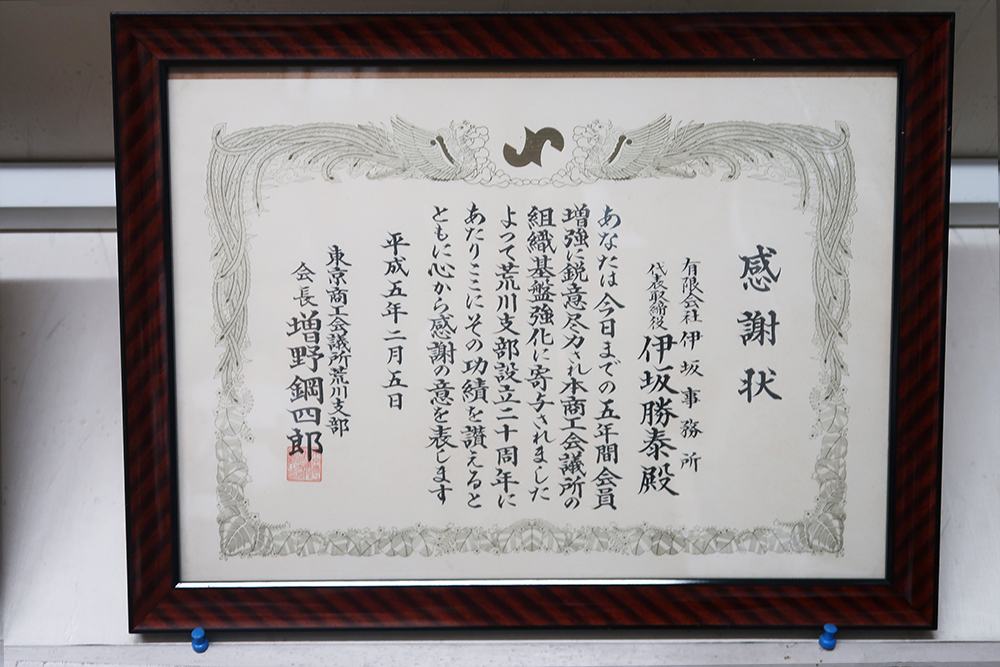 感謝状
有限会社 伊坂事務所
代表取締役 伊坂勝泰殿
あなたは今日までの五年間会員
増強に鋭意尽力され本商工会議所の
組織基盤強化に寄与されました
よつて荒川支部設立二十周年に
あたりここにその功績を讃えると
ともに心から感謝の意を表します
平成五年二月五日
東京商工会議所荒川支部
会長 増野鋼四郎